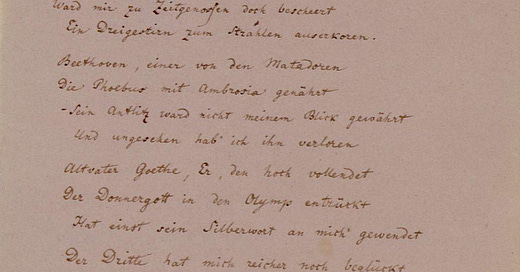 Ward mir zu Zeitgenossen doch bescheert
Ein Dreigestirn zum Strahlen auserkoren.
Beethoven, einer von den Matadoren
Die Phoebus mit Ambrosia genährt
– Sein Antlitz ward nicht meinem Blick gewährt
Und ungesehen hab' ich ihn verloren
Altvater Goethe, Er, den hoch vollendet
Der Donnergott in den Olymp entrückt
Hat einst sein Silberwort an mich gewendet
Der Dritte hat mich reicher noch beglückt